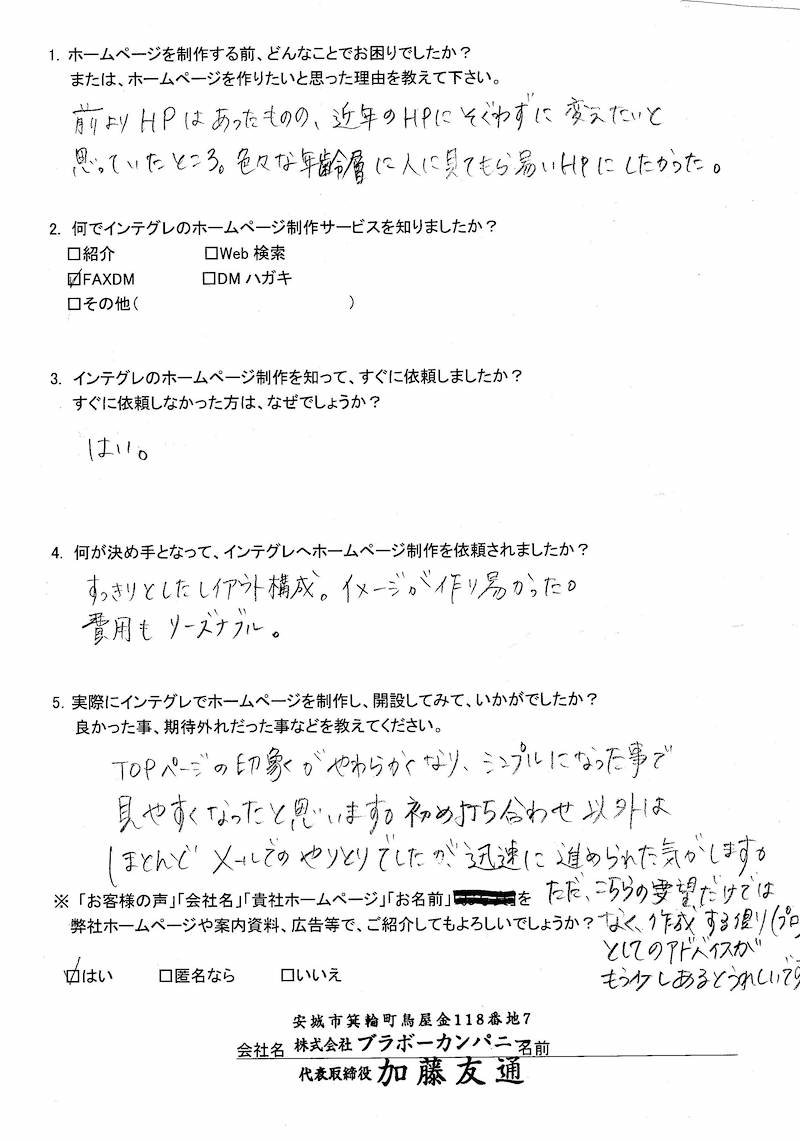 1. ホームページを制作する前、どんなことでお困りでしたか？
または、ホームページを作りたいと思った理由を教えて下さい。
前よりHPはあったものの、近年のHPにそぐわずに変えたいと
思っていたところ。色々な年齢層に人に見てもら易いHPにしたかった。
2. 何でインテグレのホームページ制作サービスを知りましたか？
□紹介 □Web 検索
☑FAXDM □DM ハガキ
□その他( )
3. インテグレのホームページ制作を知って、すぐに依頼しましたか？
すぐに依頼しなかった方は、なぜでしょうか？
はい。
4. 何が決め手となって、インテグレへホームページ制作を依頼されましたか？
すっきりとしたレイアウト構成。イメージが作り易かった。
費用もリーズナブル。
5. 実際にインテグレでホームページを制作し、開設してみて、いかがでしたか？
良かった事、期待外れだった事などを教えてください。
TOPページの印象がやわらかくなり、シンプルになった事で
見やすくなったと思います。初め打ち合わせ以外は
ほとんどメールでのやりとりでしたが、迅速に進められた気がします。
ただ、こちらの要望だけでは
なく、作成する側り(プロ)
としてのアドバイスが
もう少しあるとうれしいです
※「お客様の声」「会社名」「貴社ホームページ」「お名前」を
弊社ホームページや案内資料、広告等で、ご紹介してもよろしいでしょうか？
☑はい □匿名なら □いいえ
安城市箕輪町鳥屋金118番地7
会社名 株式会社ブラボーカンパニー 名前
代表取締役 加藤友通